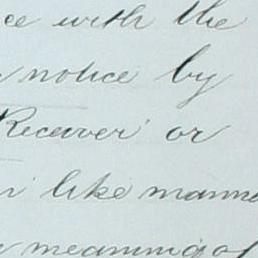 ce with the
notice by
Receiver or
like manne
meaning of